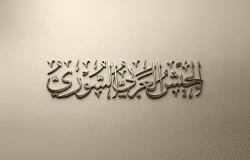 الجيش العربي السوري